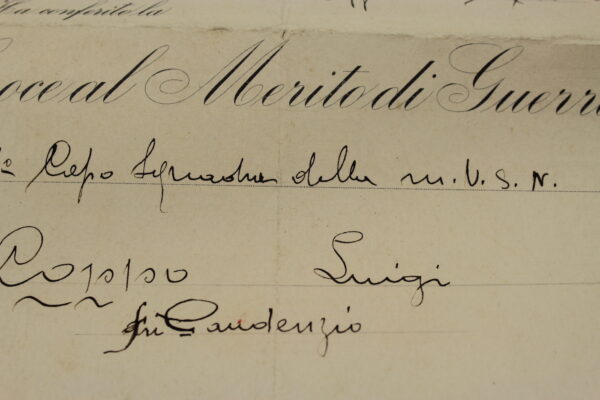 Ha conferito la
oce al Merito di Guerr
1º Capo Squadra della M.V.S.N.
Coppo Luigi
fu Gaudenzio